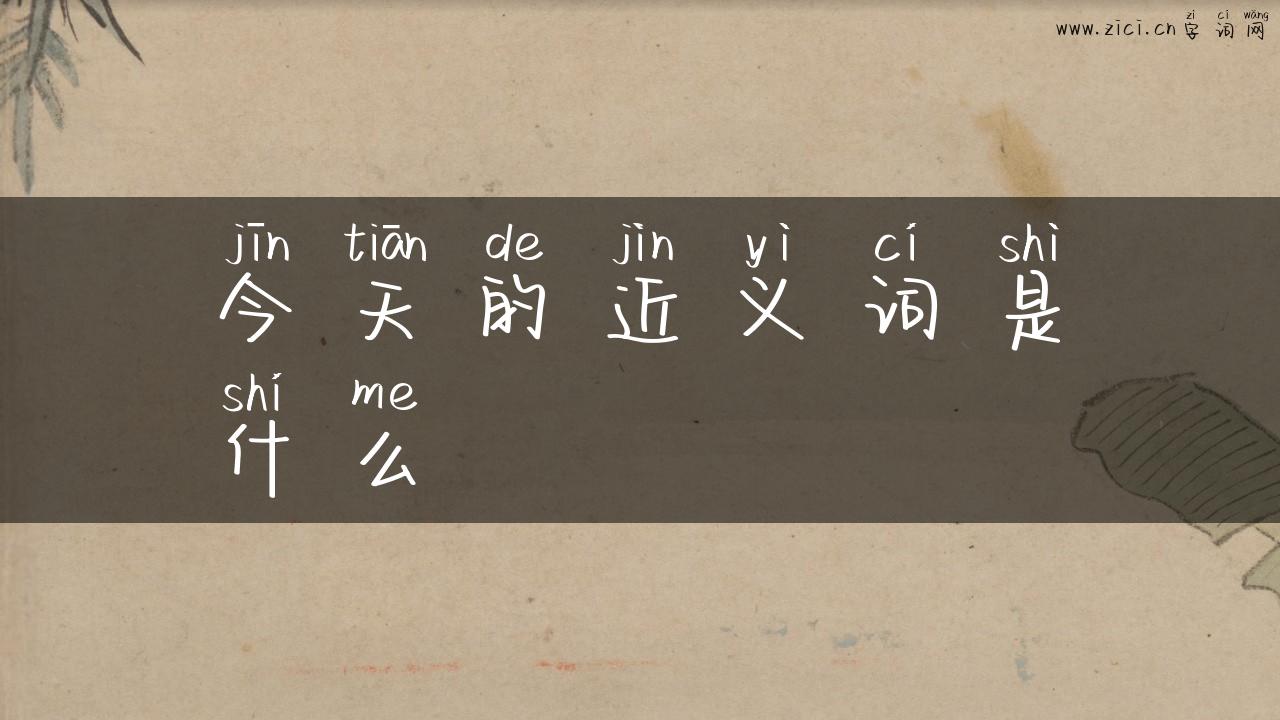 zì cí wǎng
www.zici.cn 字词网
jīn tiān de jìn yì cí shì
今天的近义词是
shí me
什么